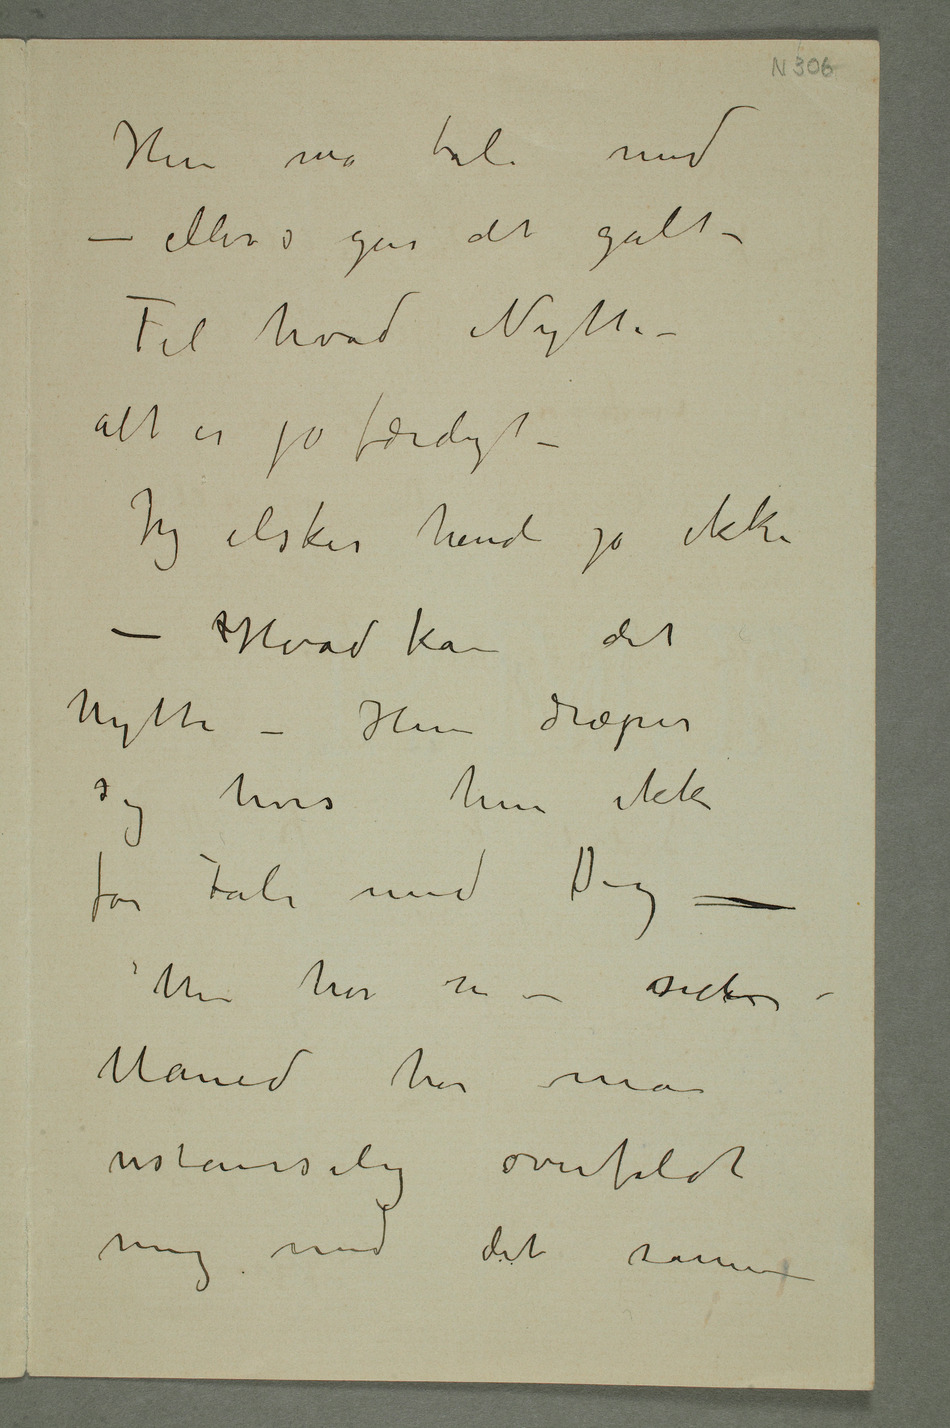 N 306
Hun må tale med
– ellers går det galt –
Til hvad Nytte –
alt er jo færdigt –
Jeg elsker hende jo ikke
– Hvad kan det
nytte – Hun dræper
sig hvis hun ikke
får Tale med Dig —
Nu har en –
Maaned har man
ustanselig overfaldt
mig med det samme